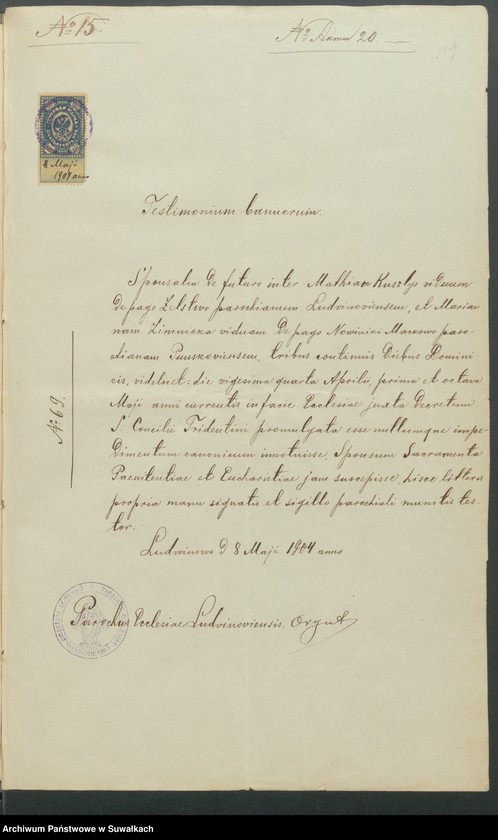 No 15.
No Акта 20
19
8 Maji
1904 anno
Testimonium bannorum.
Sponsalia de futuro inter Mathiam Kuszlys viduum
de pago Zelstvo parochianum Ludvinoviensem, et Marian-
nam Zimnicka viduam de pago Nowiniki Mackowo paro-
chianam Puńskoviensem, tribus continuis Diebus Domini-
cis, videlicet: die vigesima quarta Aprilis, prima et octava
Maji anni currentis in facie Ecclesiae juxta Decretum
S. Concilii Tridentini promulgata esse nullumque impe-
dimentum canonicum innotuisse, Sponsum Sacramenta
Paenitentiae et Eucharistiae jam suscepisse, hisce litteris
propria manu signatis et sigillo parochiali munitis tes-
tor.
Ludvinovo d 8 Maji 1904 anno
Parochus Ecclesiae Ludvinoviensis.
No 69.
Archiwum Państwowe w Suwałkach